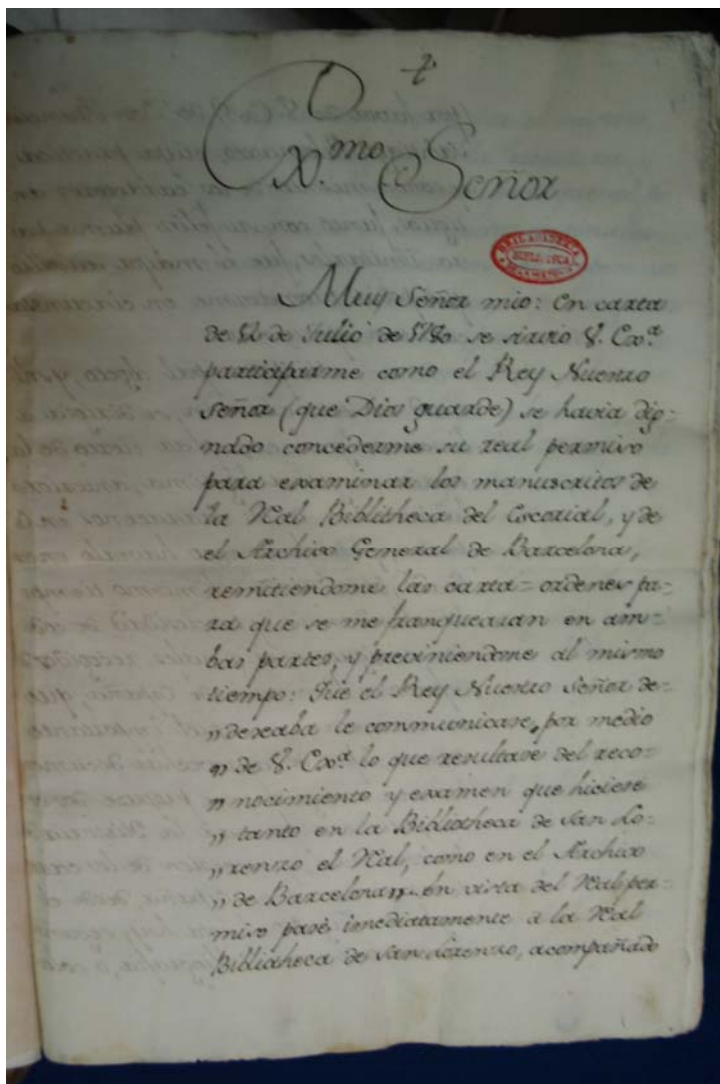 Exmo Señor
REAL ACADEMIA
BIBLIOTECA
DE LA HISTORIA
Muy Señor mio: En carta
de 12 de Julio de 1780 se sirvio V. Exª
participarme como el Rey Nuestro
Señor (que Dios guarde) se havia dig-
nado concederme su real permiso
para examinar los manuscritos de
la Real Bibliotheca del Escorial, y de
el Archivo General de Barcelona,
remitiendome las carta=ordenes pa-
ra que se me franquearan en am-
bas partes, y previniendome al mismo
tiempo: Que el Rey Nuestro Señor de-
„ deseaba le communicase, por medio
„ de V. Exª lo que resultase del reco-
„ nocimiento y examen que hiciese
„ tanto en la Bibliotheca de San Lo-
„ renzo el Real, como en el Archivo
„ de Barcelona„. En virtud del Real per-
miso pasé imediatamente a la Real
Bibliotheca de San Lorenzo, acompañado